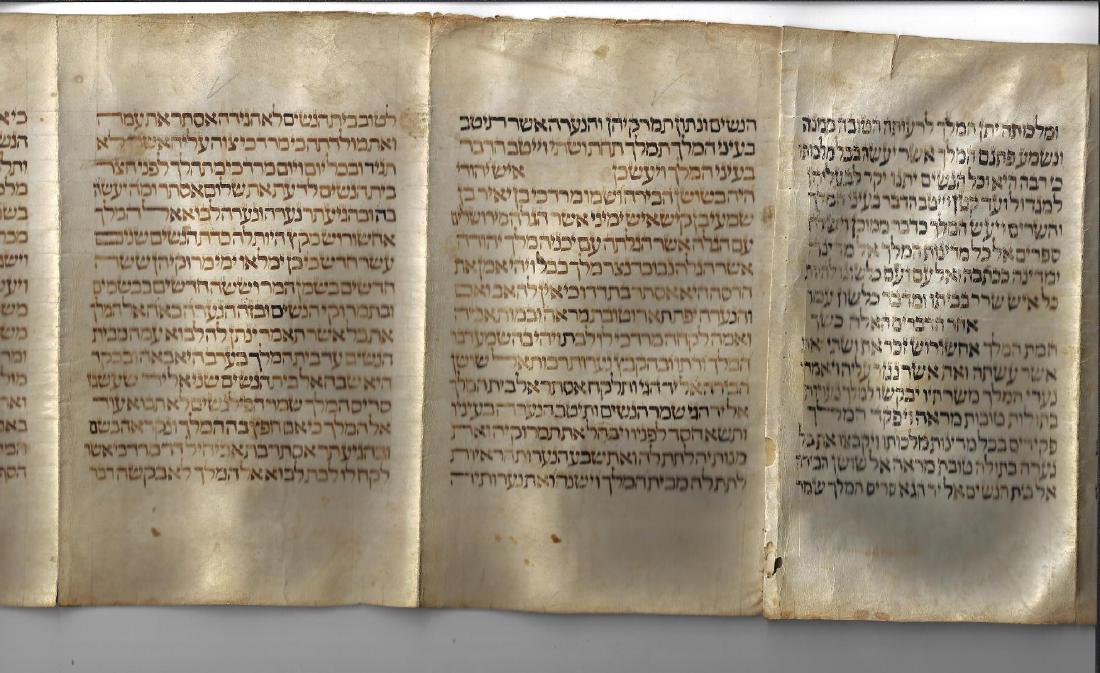 ומלכותה יתן המלך לרעותה הטובה ממנה
ונשמע פתגם המלך אשר יעשה בכל מלכותו
כי רבה היא וכל הנשים יתנו יקר לבעליהן
למגדול ועד קטן וייטב הדבר בעיני המלך
והשרים ויעש המלך כדבר ממוכן וישלח
ספרים אל כל מדינות המלך אל מדינה
ומדינה ככתבה ואל עם ועם כלשונו להיות
כל איש שרר בביתו ומדבר כלשון עמו
אחר הדברים האלה כשך
חמת המלך אחשורוש זכר את ושתי ואת
אשר עשתה ואת אשר נגזר עליה ויאמרו
נערי המלך משרתיו יבקשו למלך נערות
בתולות טובות מראה ויפקד המלך
פקידים בכל מדינות מלכותו ויקבצו את כל
נערה בתולה טובת מראה אל שושן הבירה
אל בית הנשים אל יד הגא סריס המלך שמר
הנשים ונתון תמרקיהן והנערה אשר תיטב
בעיני המלך תמלך תחת ושתי וייטב הדבר
בעיני המלך ויעש כן איש יהודי
היה בשושן הבירה ושמו מרדכי בן יאיר בן
שמעי בן קיש איש ימיני אשר הגלה מירושלים
עם הגלה אשר הגלתה עם יכניה מלך יהודה
אשר הגלה נבוכדנצר מלך בבל ויהי אמן את
הדסה היא אסתר בת דדו כי אין לה אב ואם
והנערה יפת תאר וטובת מראה ובמות אביה
ואמה לקחה מרדכי לו לבת ויהי בהשמע
המלך ודתו ובהקבץ נערות רבות אל שושן
הבירה אל יד הגי ותלקח אסתר אל בית המלך
אל יד הגי שמר הנשים ותיטב הנערה בעיניו
ותשא חסד לפניו ויבהל את תמרוקיה ואת
מנותה לתת לה ואת שבע הנערות הראיות
לתת לה מבית המלך וישנה ואת נערותיה
לטוב בית הנשים לא הגידה אסתר את עמה
ואת מולדתה כי מרדכי צוה עליה אשר לא
תגיד ובכל יום ויום מרדכי מתהלך לפני חצר
בית הנשים לדעת את שלום אסתר ומה יעשה
בה ובהגיע תר נערה ונערה לבוא אל המלך
אחשורוש מקץ היות לה כדת הנשים שנים
עשר חדש כי כן ימלאו ימי מרוקיהן ששה
חדשים בשמן המר וששה חדשים בבשמים
ובתמרוקי הנשים ובזה הנערה באה אל המלך
את כל אשר תאמר ינתן לה לבוא עמה מבית
הנשים עד בית המלך בערב היא באה ובבקר
היא שבה אל בית הנשים שני אל יד שעשגז
סריס המלך שמר הפילגשים לא תבוא עוד
אל המלך כי אם חפץ בה המלך ונקראה בשם
ובהגיע תר אסתר בת אביחיל דד מרדכי אשר
לקח לו לבת לבוא אל המלך לא בקשה דבר